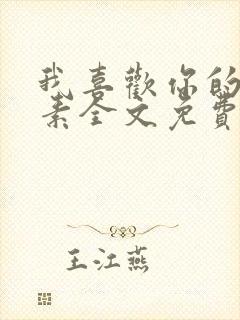 我喜歡你的
素全文免費
王江燕